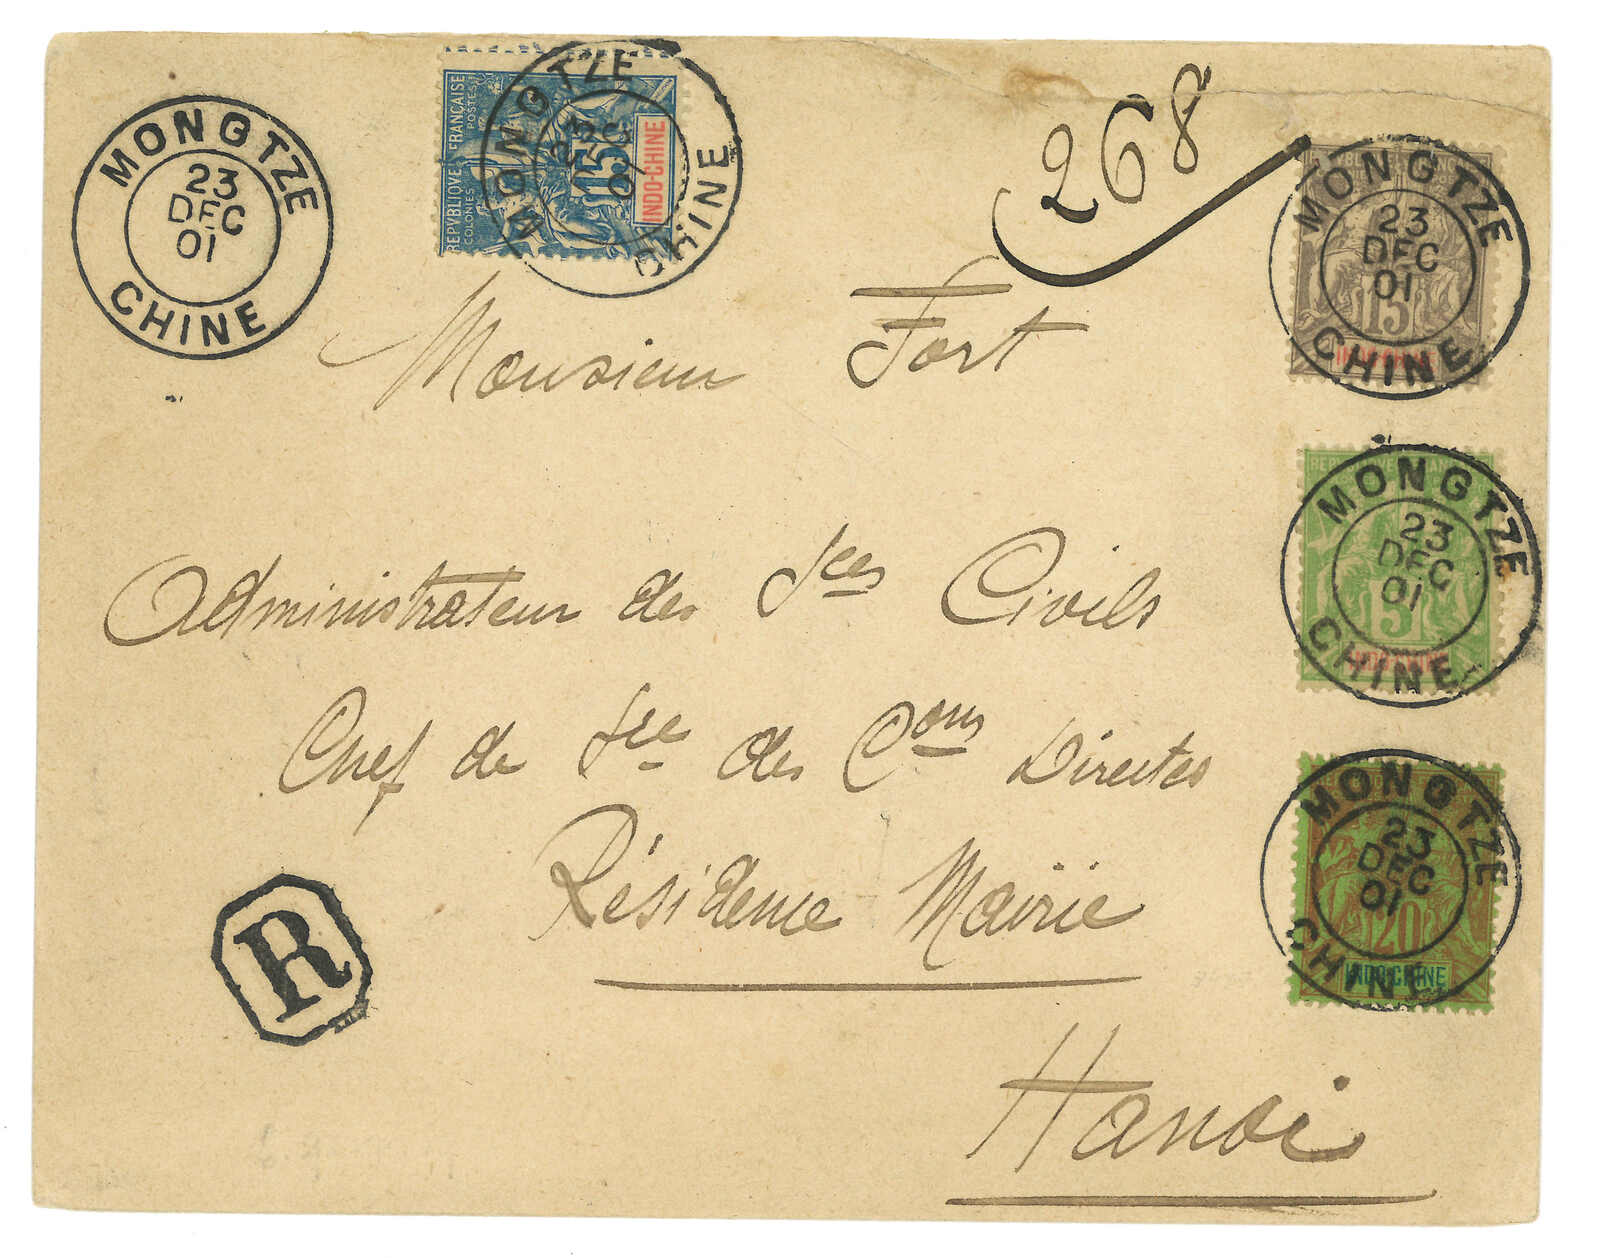 MONGTZE
23
DEC
01
CHINE
REPVBLIQVE FRANÇAISE
COLONIES POSTES
15
INDO-CHINE
MONGTZE
23
DEC
01
CHINE
268
MONGTZE
23
DEC
01
15
INDO-CHINE
CHINE
Monsieur Fort
MONGTZE
23
DEC
01
5
INDO-CHINE
CHINE
Administrateur des Sces Civils
Chef de Sce des Cons Directes
MONGTZE
23
DEC
01
20
INDO-CHINE
CHINE
Résidence Mairie
R
Hanoi